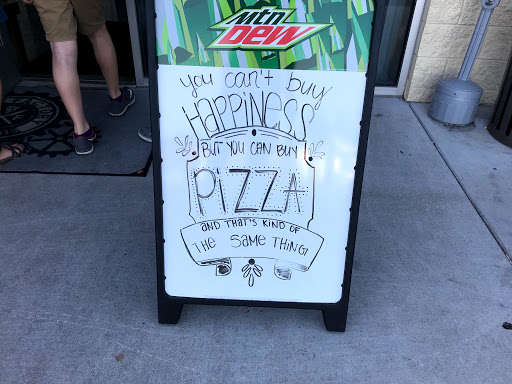 Mtn
Dew
you can't buy
HAPPINESS
BUT YOU CAN BUY
PiZZA
AND THAT'S KIND OF
THE SAME THING